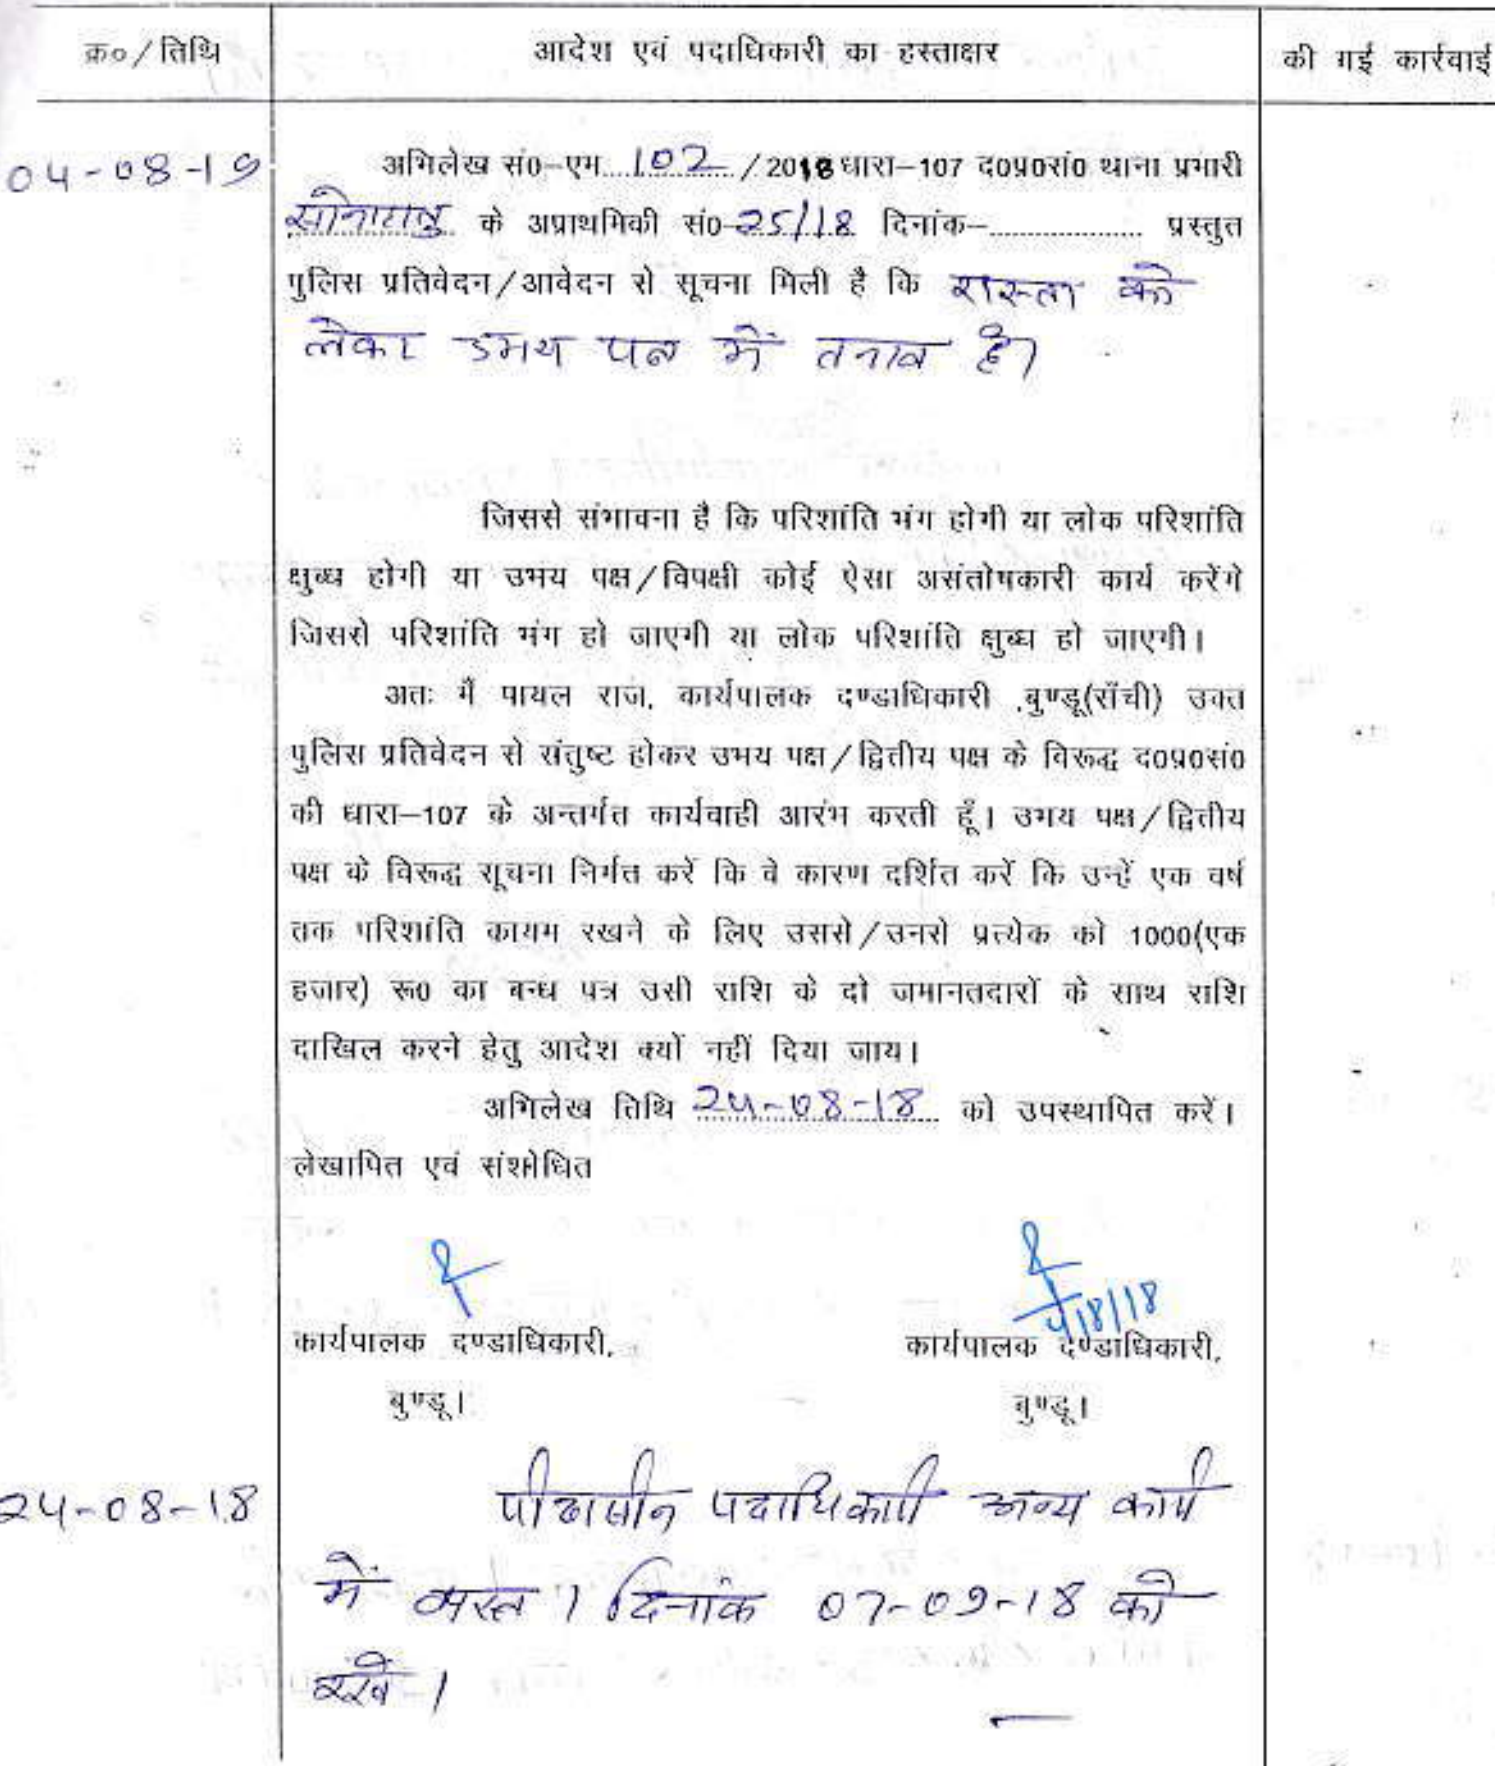 क्र०/तिथि आदेश एवं पदाधिकारी का हस्ताक्षर की गई कार्रवाई
04-08-19 अभिलेख सं०-एम 102 /2018 धारा-107 द०प्र०सं० थाना प्रभारी
सोनाहातु के अप्राथमिकी सं०-25/18 दिनांक-................... प्रस्तुत
पुलिस प्रतिवेदन/आवेदन से सूचना मिली है कि रास्ता को
लेकर उभय पक्ष में तनाव है।
जिससे संभावना है कि परिशांति भंग होगी या लोक परिशांति
क्षुब्ध होगी या उभय पक्ष/विपक्षी कोई ऐसा असंतोषकारी कार्य करेंगे
जिससे परिशांति भंग हो जाएगी या लोक परिशांति क्षुब्ध हो जाएगी।
अतः मैं पायल राज, कार्यपालक दण्डाधिकारी ,बुण्डू(राँची) उक्त
पुलिस प्रतिवेदन से संतुष्ट होकर उभय पक्ष/द्वितीय पक्ष के विरूद्ध द०प्र०सं०
की धारा-107 के अन्तर्गत कार्यवाही आरंभ करती हूँ। उभय पक्ष/द्वितीय
पक्ष के विरूद्ध सूचना निर्गत करें कि वे कारण दर्शित करें कि उन्हें एक वर्ष
तक परिशांति कायम रखने के लिए उससे/उनसे प्रत्येक को 1000(एक
हजार) रू० का बन्ध पत्र उसी राशि के दो जमानतदारों के साथ राशि
दाखिल करने हेतु आदेश क्यों नहीं दिया जाय।
अभिलेख तिथि 24-08-18 को उपस्थापित करें।
लेखापित एवं संशोधित
4/8/18
कार्यपालक दण्डाधिकारी, कार्यपालक दण्डाधिकारी,
बुण्डू। बुण्डू।
24-08-18 पीठासीन पदाधिकारी अन्य कार्य
में व्यस्त। दिनांक 07-09-18 को
रखें।